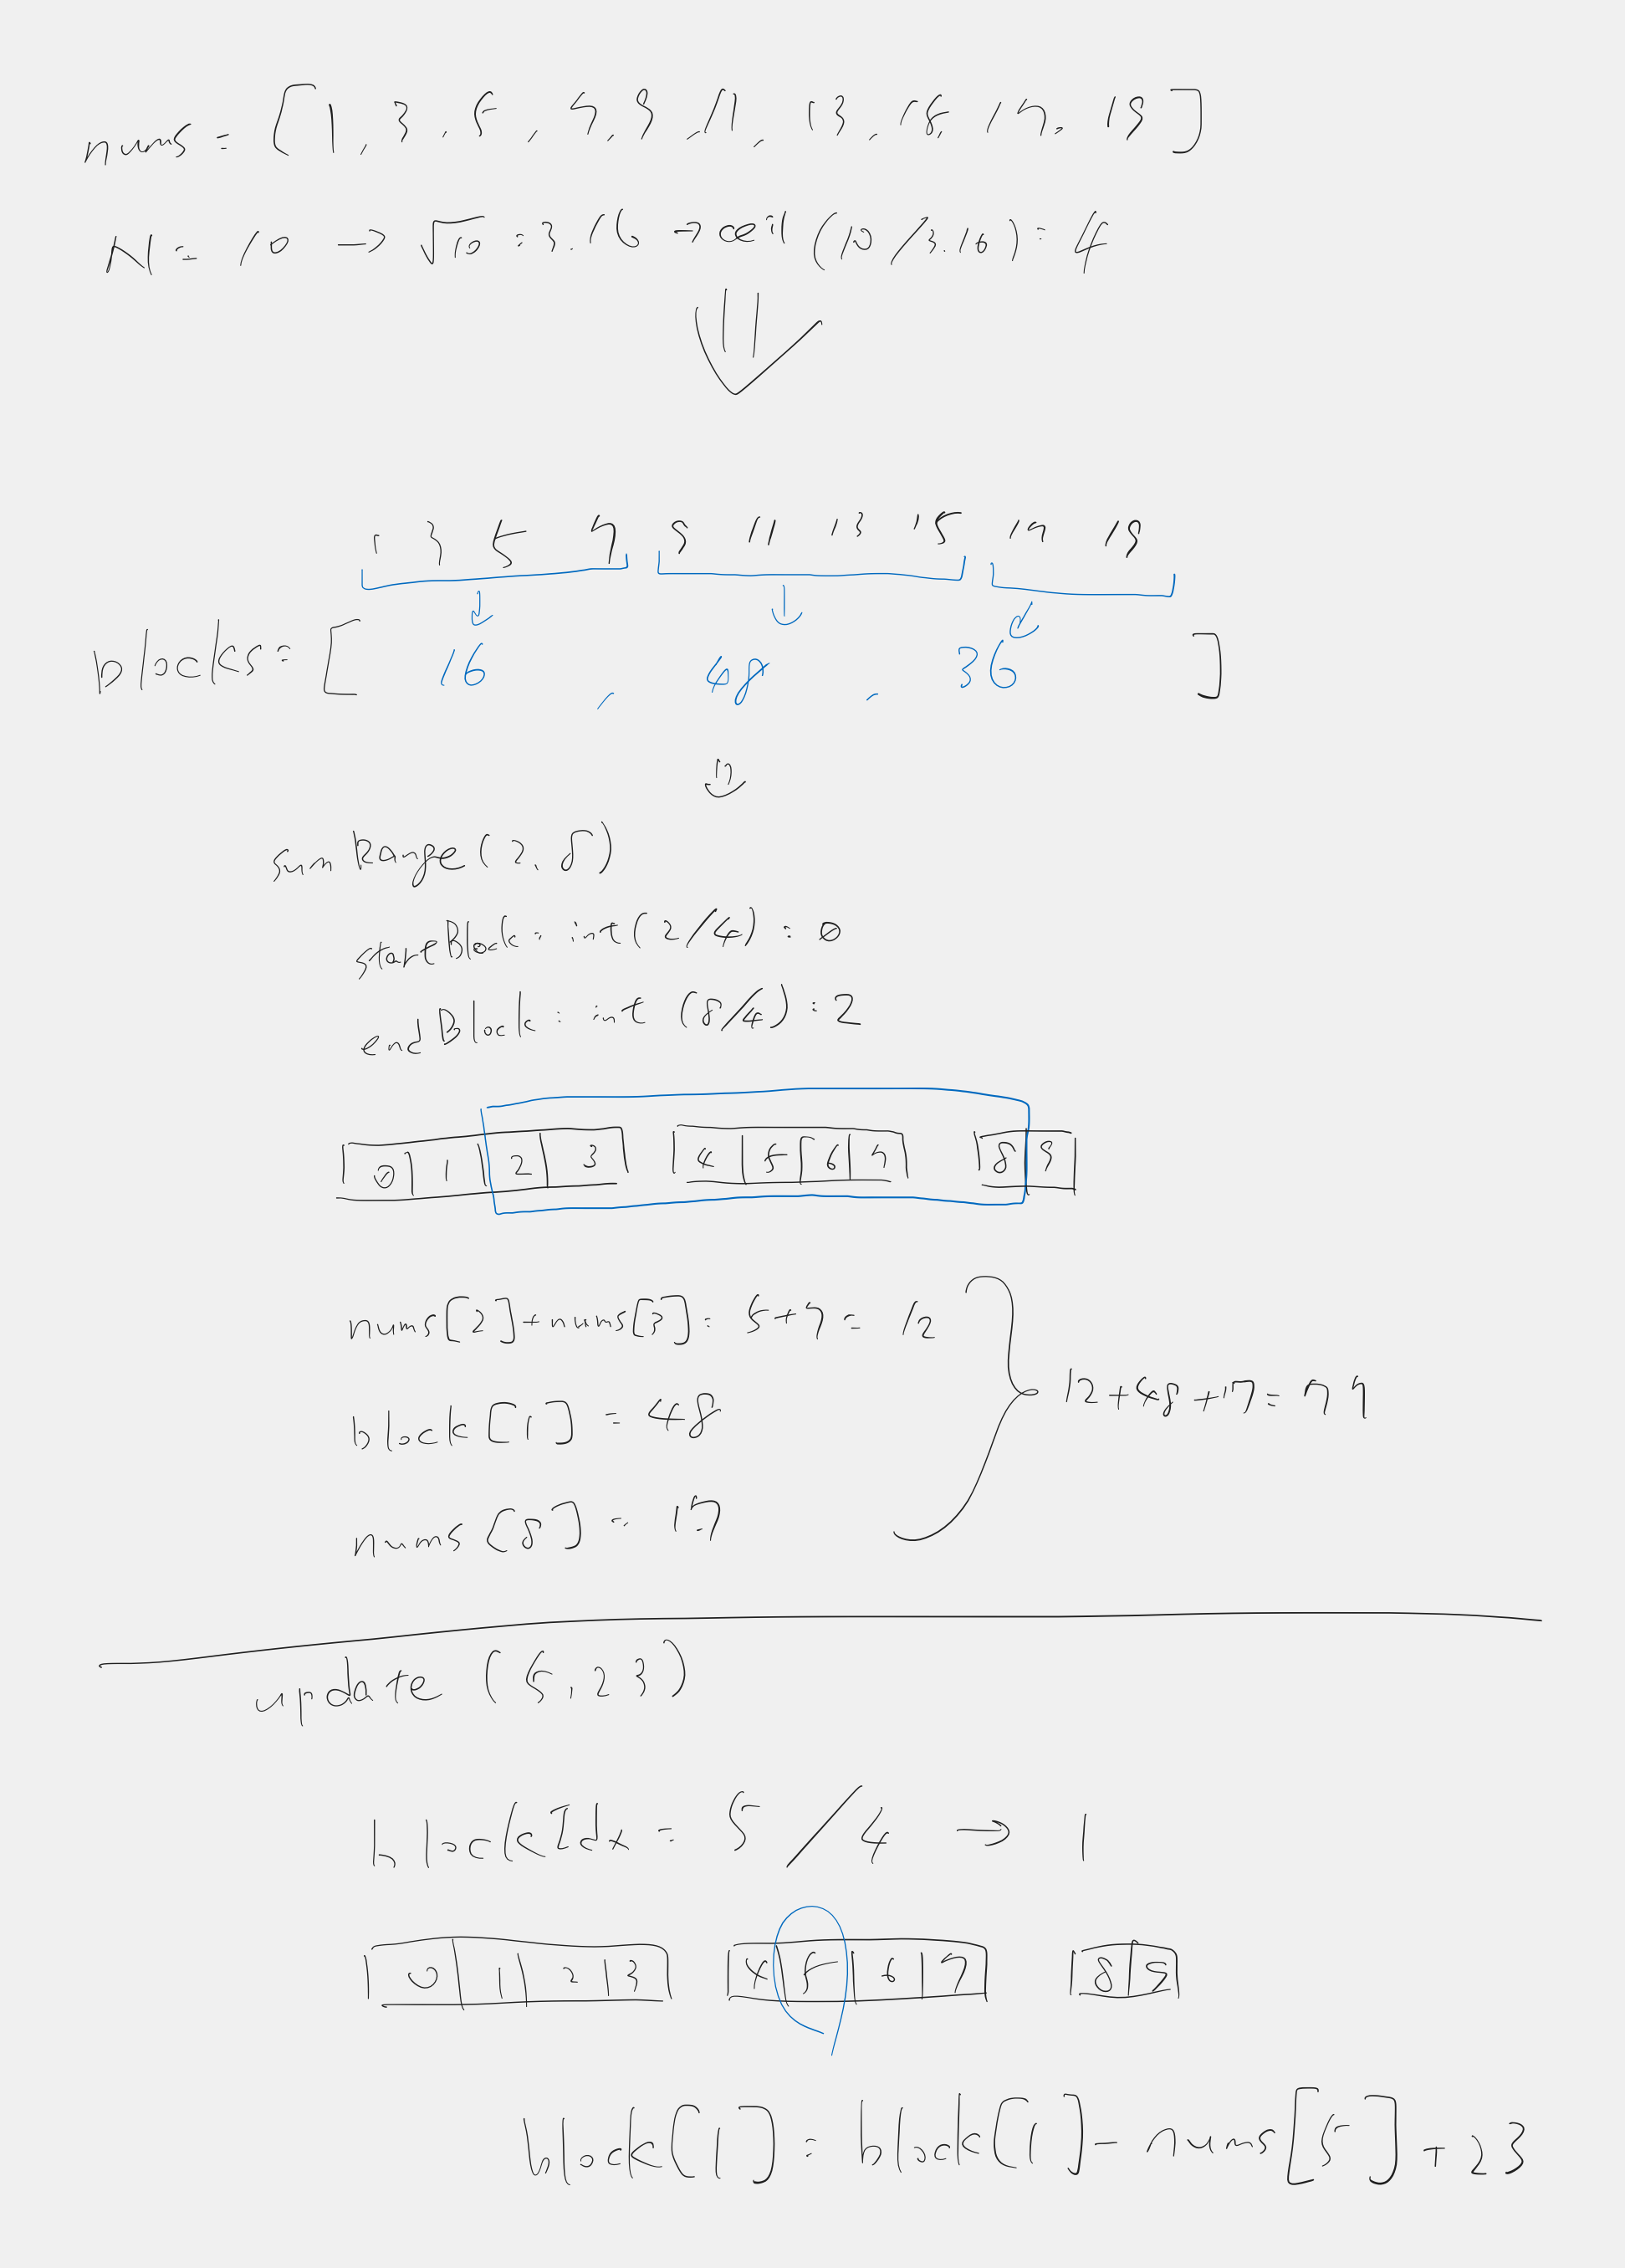 nums = [1, 3, 5, 7, 9, 11, 13, 15, 17, 19]
N = 10 → √10 = 3.16 → ceil (10/3.16) = 4
1 3 5 7 9 11 13 15 17 19
blocks = [ 16 , 48 , 36 ]
sumRange(2, 8)
startBlock = int(2/4) = 0
endBlock = int (8/4) = 2
0 1 2 3 4 5 6 7 8 9
nums[2]+nums[3] = 5+7 = 12
block[1] = 48
12+48+17=77
nums[8] = 17
update (5, 23)
blockIdx = 5/4 → 1
0 1 2 3 4 5 6 7 8 9
block[1] = block[1] - nums[5] + 23